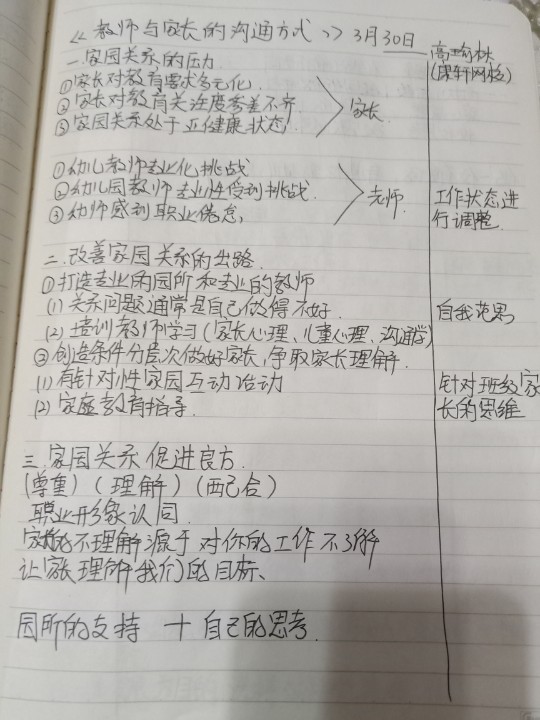 《教师与家长的沟通方式》 3月30日
一.家园关系的压力
①家长对教育要求多元化
②家长对教育关注度参差不齐
③家园关系处于亚健康状态,
家长
①幼儿教师专业化挑战
②幼儿园教师专业性受到挑战.
③幼师感到职业倦怠,
老师.
二.改善家园关系的出路.
①打造专业的园所和专业的教师
(1) 关系问题通常是自己做得不好.
(2) 培训教师学习(家长心理、儿童心理、沟通学)
③创造条件分层次做好家长,争取家长理解.
(1) 有针对性家园互动活动
(2) 家庭教育指导.
三.家园关系促进良方.
(尊重)(理解)(配合)
职业形象认同.
不理解源于对你的工作不了解
让家长理解我们的目标、
园所的支持 + 自己的思考.
工作状态进
行调整.
自我
针对班级家
长的思维